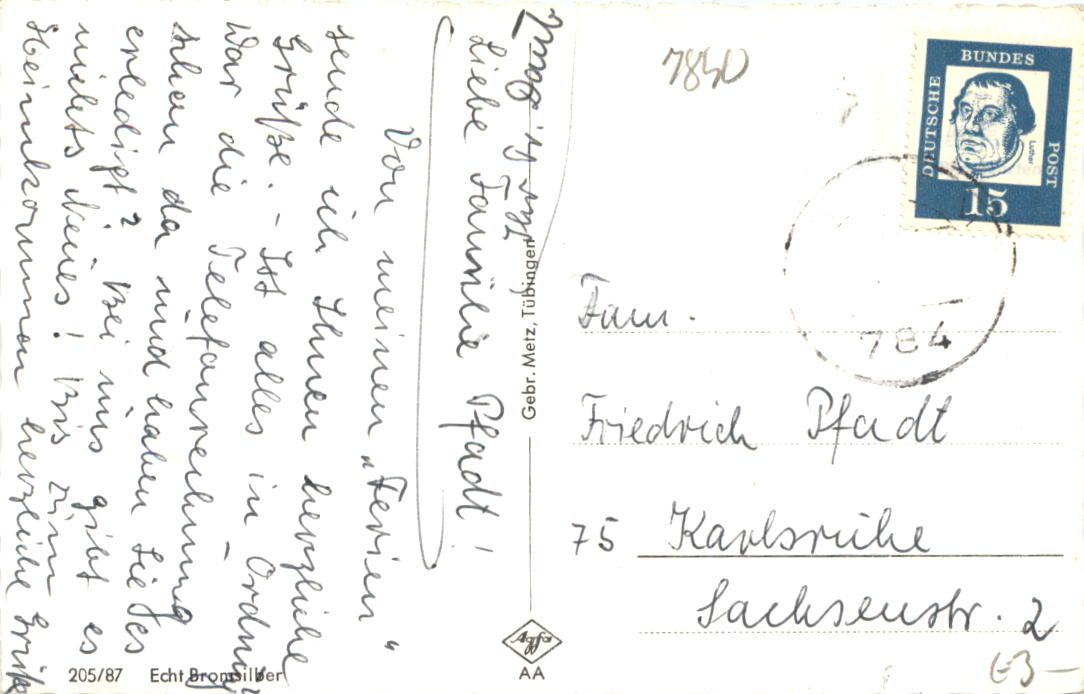 Liebe Familie Pfadt!
Von meinen „Ferien“
sende ich Ihnen herzliche
Grüße. – Ist alles in Ordnung
War die Telefonrechnung
schon da und haben Sie es
erledigt? Bei uns gibt es
nichts Neues! Bis zum
Heimkommen herzliche Grüße
Gebr. Metz, Tübingen
7830
BUNDES
DEUTSCHE
POST
Luther
15
784
Fam.
Friedrich Pfadt
75 Karlsruhe
Sachsenstr. 2
Agfa
AA
205/87 Echt Bromsilber
€3–